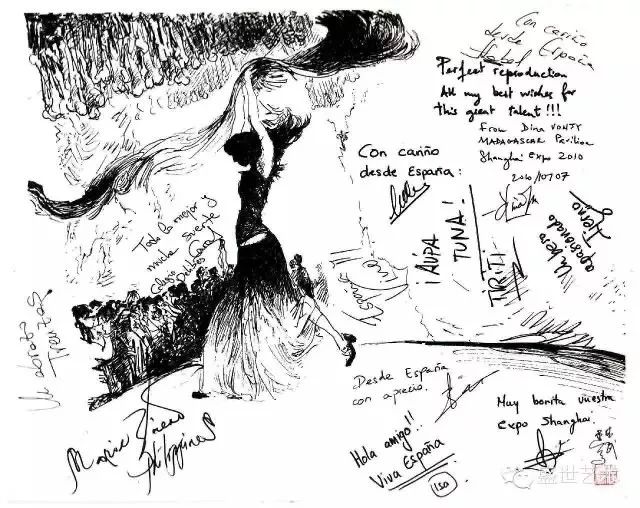 Con cariño
desde España
Perfect reproduction
All my best wishes for
this great talent!!!
From Dina VONJY
MADAGASCAR Pavilion
Shanghai Expo 2010
2010/07/07
Con cariño
desde España:
Todo lo mejor y
mucha suerte
¡AÚPA
TUNA!
TIRITI
Un beso
apasionado
Tierno
España
Un abrazo
Maria
Philippines
Desde España
con aprecio.
Hola amigo!!
Viva España
Ilsa
Muy bonita vuestra
expo Shanghai.
盛世艺